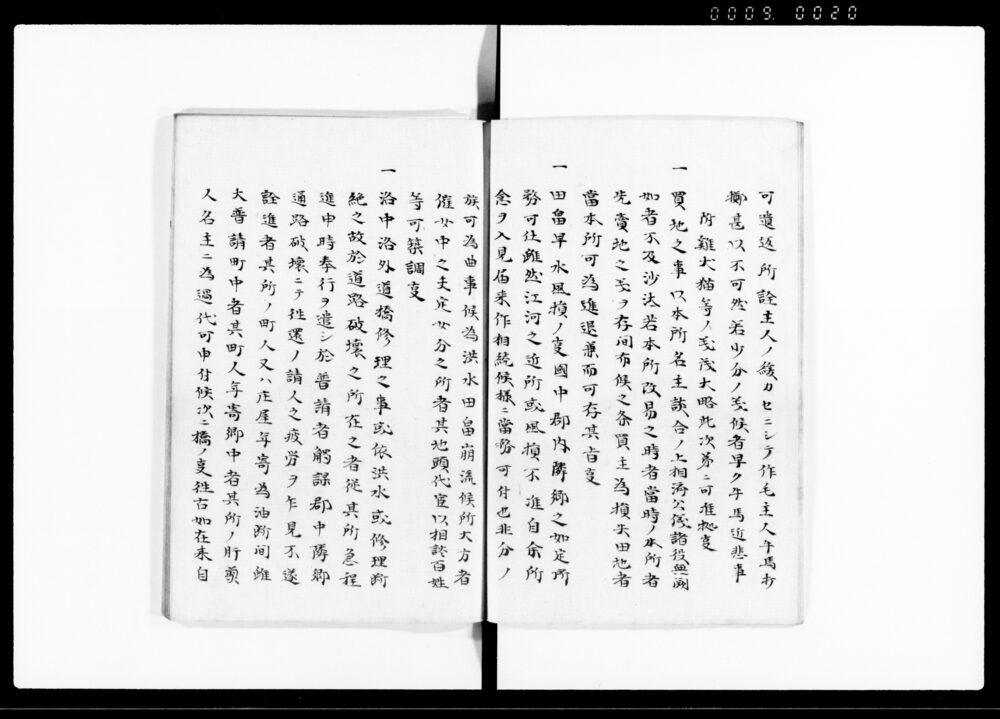 0009. 0020
可遣返所詮主人ノ緩カセニシテ作毛主人牛馬打
擲甚以不可然若少分ノ㕝候者早ク牛馬近悲事
附雞犬猫等ノ㕝茂大略此次第ニ可准拠㕝
一買地之事以本所名主談合ノ上相済公儀諸役無闕
如者不及沙汰若本所改易之時者當時ノ本所者
先賣地之㕝ヲ存間布候之条買主為損失田地者
當本所可為進退兼而可存其旨㕝
一田畠旱水風損ノ㕝國中郡内隣郷之如定所
務可仕雖然江河之近所或風損不准自余所
念ヲ入見届来作相続候様ニ當務可付也非分ノ
族可為曲事候為洪水田畠崩流候所大方者
催女中之夫定女分之所者其地頭代官以相談百姓
等可築調㕝
一洛中洛外道橋修理之事或依洪水或修理断
絶之故於道路破壊之所在之者従其所急程
進申時奉行ヲ遣シ於普請者觸詠郡中隣郷
通路破壊ニテ往還ノ請人之疲労ヲ乍見不遂
詮進者其所ノ町人又ハ庄屋年寄為油断間雖
大普請町中者其町人年寄郷中者其所ノ肝煎
人名主ニ為過代可申付候次ニ橋ノ㕝往古如在来自